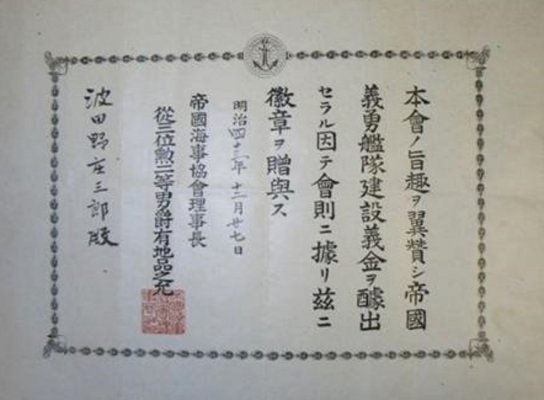 本會ノ旨趣ヲ翼賛シ帝國
義勇艦隊建設義金ヲ醵出
セラル因テ會則ニ據リ茲ニ
徽章ヲ贈與ス
明治四十三年十二月廿七日
帝國海事協會理事長
從三位勲二等男爵有地品之允
波田野庄三郎殿